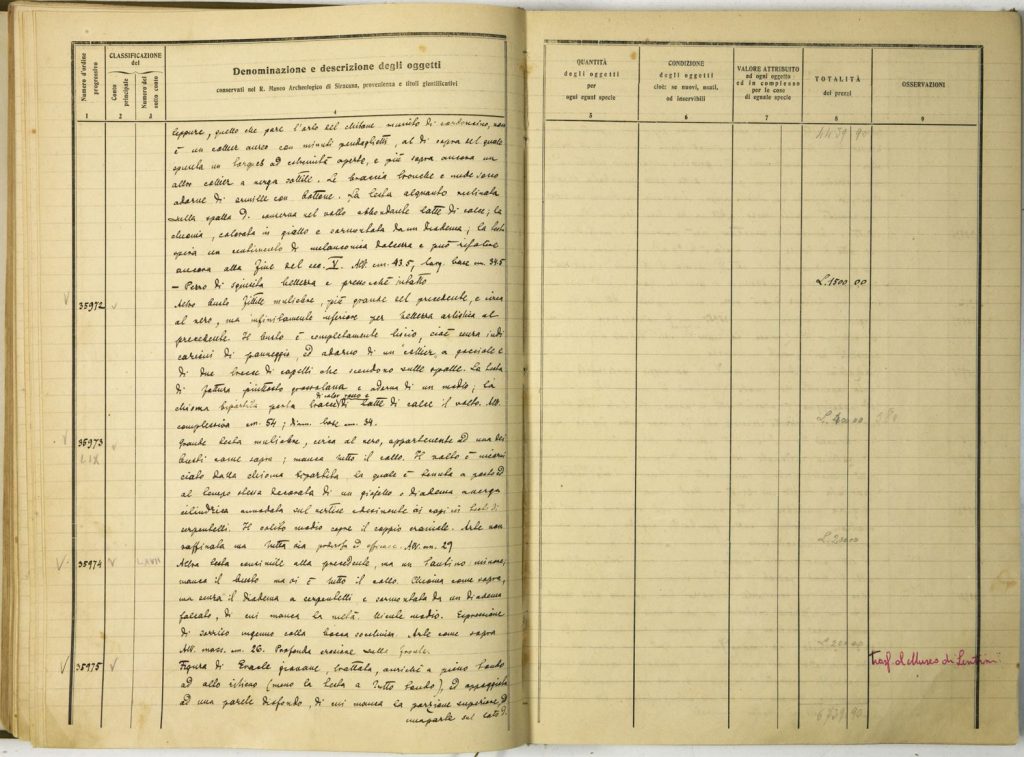 Numero d'ordine progressivo
CLASSIFICAZIONE del
Conto principale
Numero del sotto conto
Denominazione e descrizione degli oggetti
conservati nel R. Museo Archeologico di Siracusa, provenienza e titoli giustificativi
1 2 3 4
QUANTITÀ degli oggetti per ogni egual specie
CONDIZIONE degli oggetti cioè: se nuovi, usati, od inservibili
VALORE ATTRIBUITO ad ogni oggetto ed in complesso per le cose di eguale specie
TOTALITÀ dei prezzi
OSSERVAZIONI
5 6 7 8 9
4439 90
eppure, quello che pare l'orlo del chitone munito di cordoncino, non
è un collier aureo con minuti pendaglietti, al di sopra del quale
spunta un torques ad estremità aperte, e più sopra ancora un
altro collier a verga sottile. Le braccia tronche e nude sono
adorne di armille con bottone. La testa alquanto reclinata
sulla spalla d. conserva nel volto abbondante latte di calce; la
chioma, colorata in giallo e sormontata da un diadema; la testa
spira un sentimento di melanconica dolcezza e può riferirsi
ancora alla fine del sec. V. Alt. cm. 43.5, larg. base cm. 34.5
- Pezzo di squisita bellezza e pressochè intatto
L. 1500 00
35972
Altro busto fittile muliebre, più grande del precedente, e circa
al vero, ma infinitamente inferiore per bellezza artistica al
precedente. Il busto è completamente liscio, cioè senza indi
cazioni di panneggio, ed adorno di un collier a gocciole e
di due trecce di capelli che scendono sulle spalle. La testa
di fattura piuttosto grossolana e adorna di un modio; la
chioma bipartita porta tracce di color rosso e di latte di calce il volto. Alt.
complessiva cm. 54; dim. base cm. 34.
35973
LIX
Grande testa muliebre, circa al vero, appartenente ad uno dei
busti come sopra; manca tutto il collo. Il volto è incorni
ciato dalla chioma bipartita, la quale è tenuta a posto ed
al tempo stesso decorata di un gioiello o diadema a verga
cilindrica annodata sul vertice desinente ai capi in teste di
serpentelli. Il solito modio copre il coppio craniale. Arte non
raffinata ma tuttavia ed efficace. Alt. cm. 29
35974
LXVII
Altra testa consimile alla precedente, ma un tantino minore;
manca il busto ma vi è tutto il collo. Chioma come sopra,
ma senza il diadema a serpentelli e sormontata da un diadema
falcato, di cui manca la metà. Niente modio. Espressione
di sorriso ingenuo colla bocca socchiusa. Arte come sopra
Alt. mass. cm. 26. Profonda erosione sulla fronte.
35975
Figura di Eracle giovane, trattata, anzichè a pieno tondo
ad alto schieno (meno la testa a tutto tondo), ed appoggiata
ad una parete di sfondo, di cui manca la porzione superiore, ed
una parte sul lato d.
trasf. al Museo di Lentini
6739 90